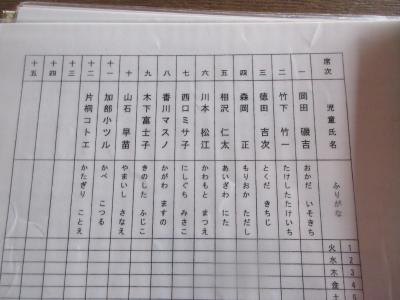 席次 児童氏名 ふりがな 火 水 木 金 土 1 2 3 4 5
一 岡田 磯吉 おかだ いそきち
二 竹下 竹一 たけした たけいち
三 徳田 吉次 とくだ きちじ
四 森岡 正 もりおか ただし
五 相沢 仁太 あいざわ にた
六 川本 松江 かわもと まつえ
七 西口 ミサ子 にしぐち みさこ
八 香川 マスノ かがわ ますの
九 木下 富士子 きのした ふじこ
十 山石 早苗 やまいし さなえ
十一 加部 小ツル かべ こつる
十二 片桐 コトエ かたぎり ことえ
十三
十四
十五